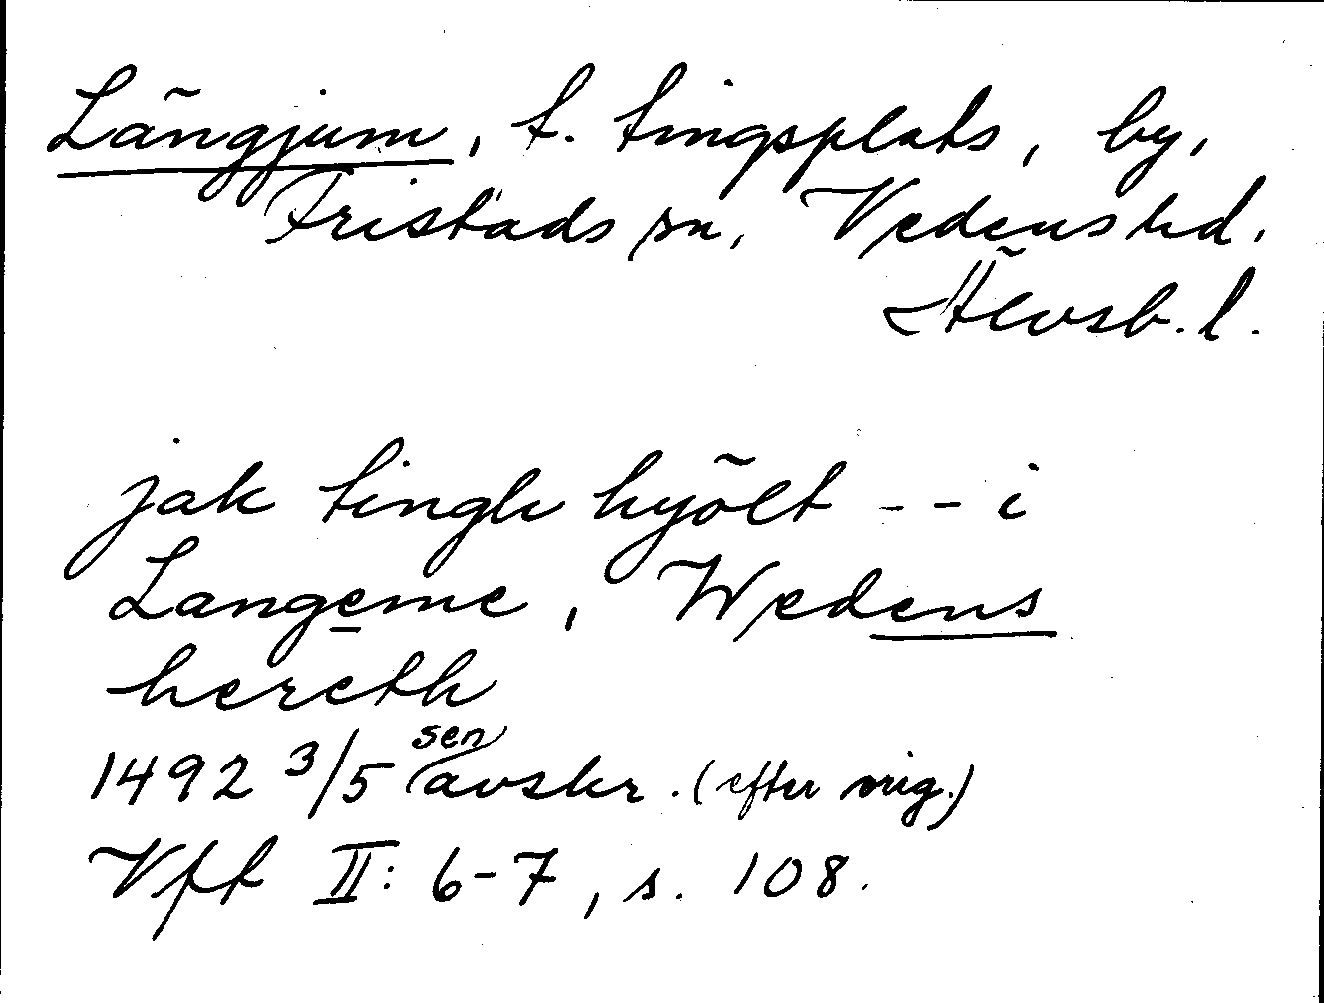 Längjum, t. tingsplats, by,
Fristads sn, Vedens hd.
Älvsb. l.
jak tingh hyölt -- i
Langeme, Wedens
hereth
1492 3/5 sen avskr. (efter orig.)
Vft II: 6-7, s. 108.